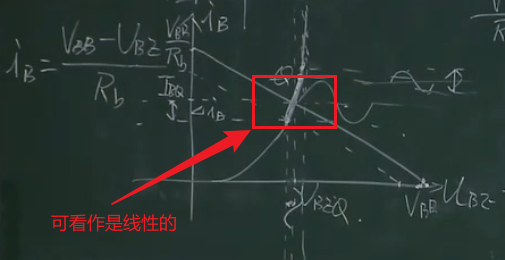 i_B = (V_BB - U_BZ) / R_b
V_BB / R_b
i_B
I_BQ
Δi_B
Q
U_BZQ
V_BB
U_BZ
可看作是线性的